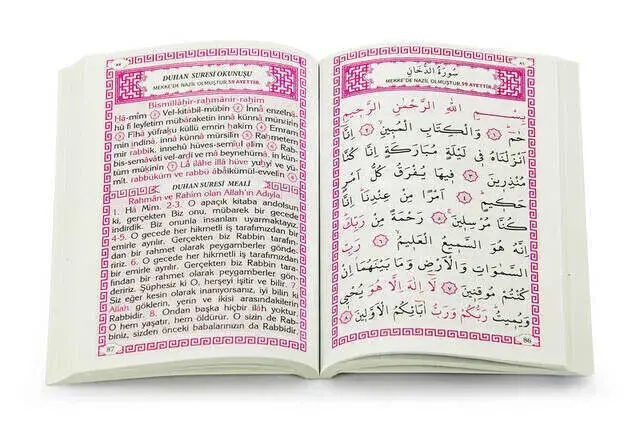 DUHAN SURESİ OKUNUŞU
MEKKE'DE NAZİL OLMUŞTUR, 59 AYETTİR.
Bismillâhir-rahmânir-rahîm
Hâ-mîm ① Vel-kitâbil-mübîn ② İnnâ enzelnâ-
hü fî leyletim mübâraketin innâ künnâ münzirîn
③ Fîhâ yüfraku küllü emrin hakîm ④ Emram
min indinâ, innâ künnâ mürsilîn ⑤ Rahmetem
mir rabbik, innehû hüves-semîul alîm ⑥ Rab-
bis-semâvâti vel-ardı ve mâ beynehümâ, in kün-
tüm mûkınîn ⑦ Lâ ilâhe illâ hüve yuhyî ve yü-
mît, rabbüküm ve rabbü âbâikümül-evvelîn ⑧
DUHAN SURESİ MEALİ
Rahmân ve Rahîm olan Allah'ın Adıyla.
1. Hâ Mîm. 2-3. O apaçık kitaba andolsun
ki, gerçekten Biz onu, mübarek bir gecede
indirdik. Biz onunla insanları uyarmaktayız.
4-5. O gecede her hikmetli iş tarafımızdan bir
emirle ayrılır. Gerçekten biz Rabbin tarafın-
dan bir rahmet olarak peygamberler gönde-
ririz. 6. O gecede her hikmetli iş tarafımızdan
bir emirle ayrılır. Gerçekten biz Rabbin tara-
fından bir rahmet olarak peygamberler gön-
deririz. Şüphesiz ki O, herşeyi işitir ve bilir. 7.
Siz eğer kesin olarak inanıyorsanız, iyi bilin ki
Allah göklerin, yerin ve ikisi arasındakilerin
Rabbidir. 8. Ondan başka hiçbir ilâh yoktur.
O hem yaşatır, hem öldürür. O sizin de Rab-
biniz, sizden önceki babalarınızın da Rabbidir.
87
سُورَةُ الدُّخَانِ
MEKKE'DE NAZİL OLMUŞTUR, 59 AYETTİR.
بِسْمِ اللّٰهِ الرَّحْمٰنِ الرَّحِيمِ
حٰمٓ ﴿١﴾ وَالْكِتَابِ الْمُبِينِ ﴿٢﴾ اِنَّٓا
اَنْزَلْنَاهُ فِي لَيْلَةٍ مُبَارَكَةٍ اِنَّا كُنَّا
مُنْذِرِينَ ﴿٣﴾ فِيهَا يُفْرَقُ كُلُّ اَمْرٍ
حَكِيمٍ ﴿٤﴾ اَمْرًا مِنْ عِنْدِنَا اِنَّا
كُنَّا مُرْسِلِينَ ﴿٥﴾ رَحْمَةً مِنْ رَبِّكَ
اِنَّهُ هُوَ السَّمِيعُ الْعَلِيمُ ﴿٦﴾ رَبِّ
السَّمٰوَاتِ وَالْاَرْضِ وَمَا بَيْنَهُمَا اِنْ
كُنْتُمْ مُوقِنِينَ ﴿٧﴾ لَٓا اِلٰهَ اِلَّا هُوَ يُحْيِي
وَيُمِيتُ رَبُّكُمْ وَرَبُّ اٰبَٓائِكُمُ الْاَوَّلِينَ ﴿٨﴾
86